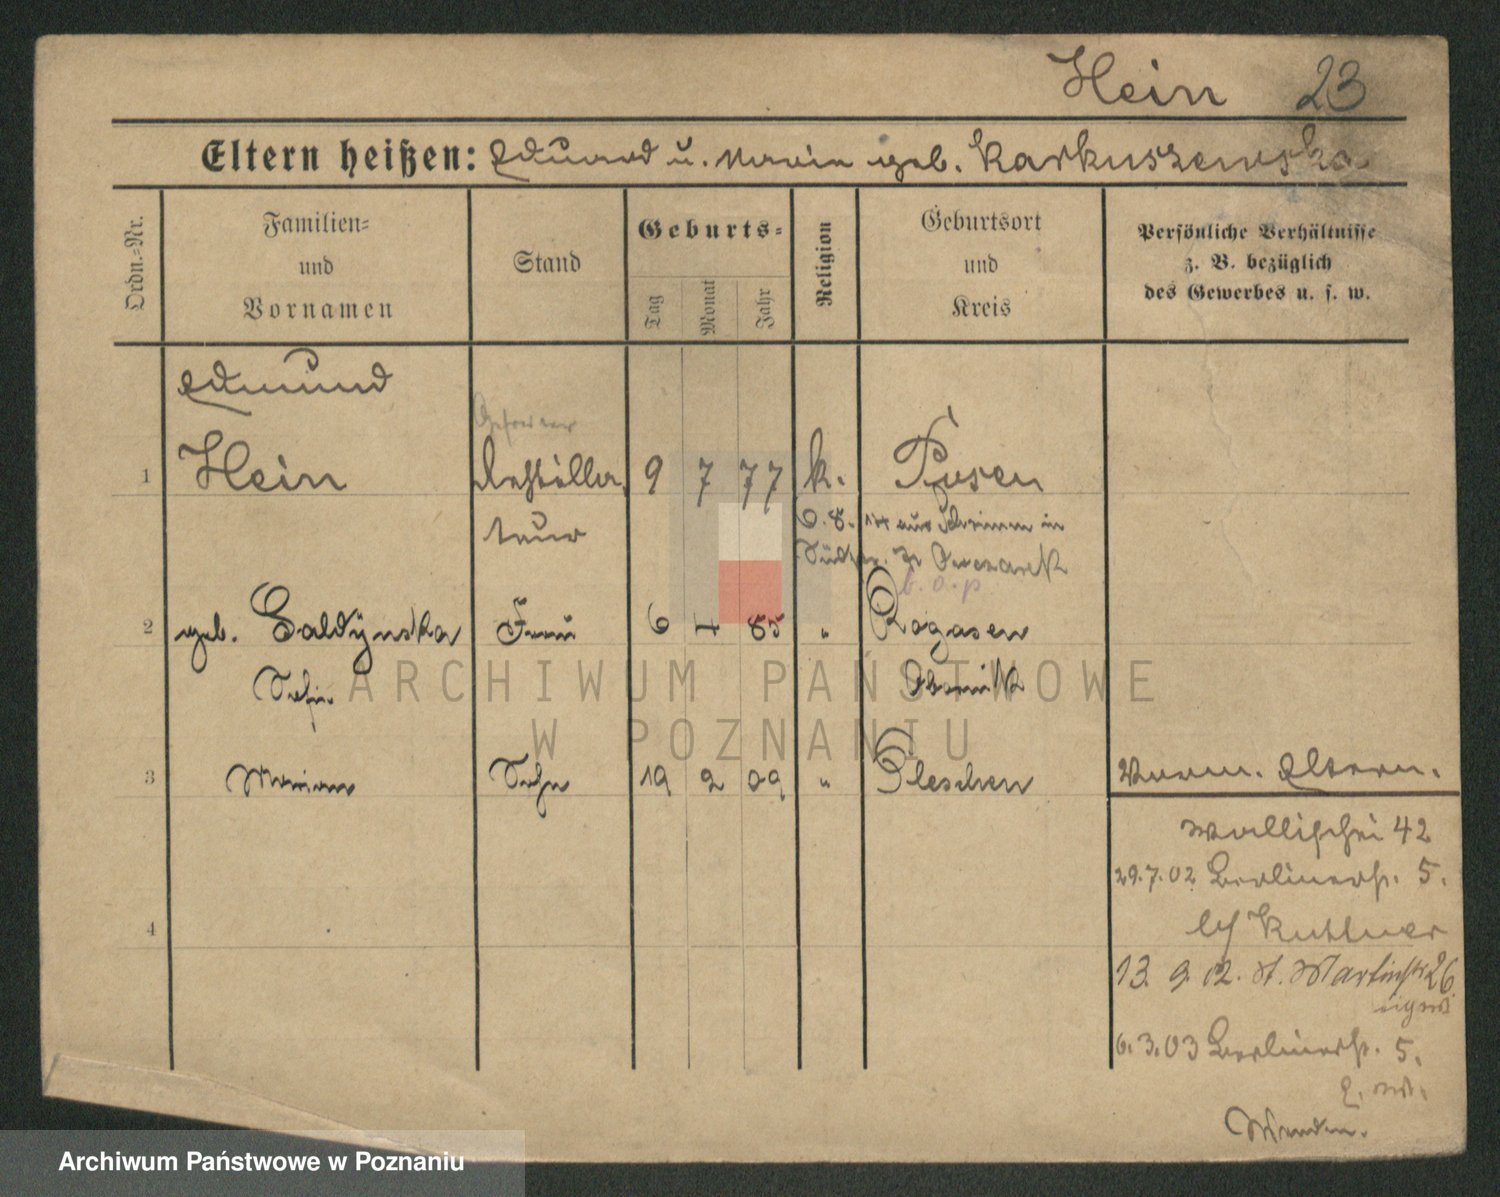 Hein 23
Eltern heißen: Eduard u. Maria geb. Karkuszewska
Ordn.-Nr.
Familien-
und
Vornamen
Stand
Geburts-
Tag
Monat
Jahr
Religion
Geburtsort
und
Kreis
Persönliche Verhältnisse
z. B. bezüglich
des Gewerbes u. s. w.
Edmund
1 Hein Destilla 9 7 77 k. Posen
teur
6. 8. 14 aus Schrimm in
b. a. p
2 geb. Saldynska Frau 6 4 85 " Rogasen
Sofie Obornik
3 Marian Sohn 19 2 09 " Pleschen
Verm. Eltern.
Wallischei 42
29.7.02 Berlinerstr. 5.
b/ Kuttner
4
13. 9. 02. St. Martinstr 26
6.3.03 Berlinerstr. 5.
Wenden.
ARCHIWUM PAŃSTWOWE
W POZNANIU
Archiwum Państwowe w Poznaniu